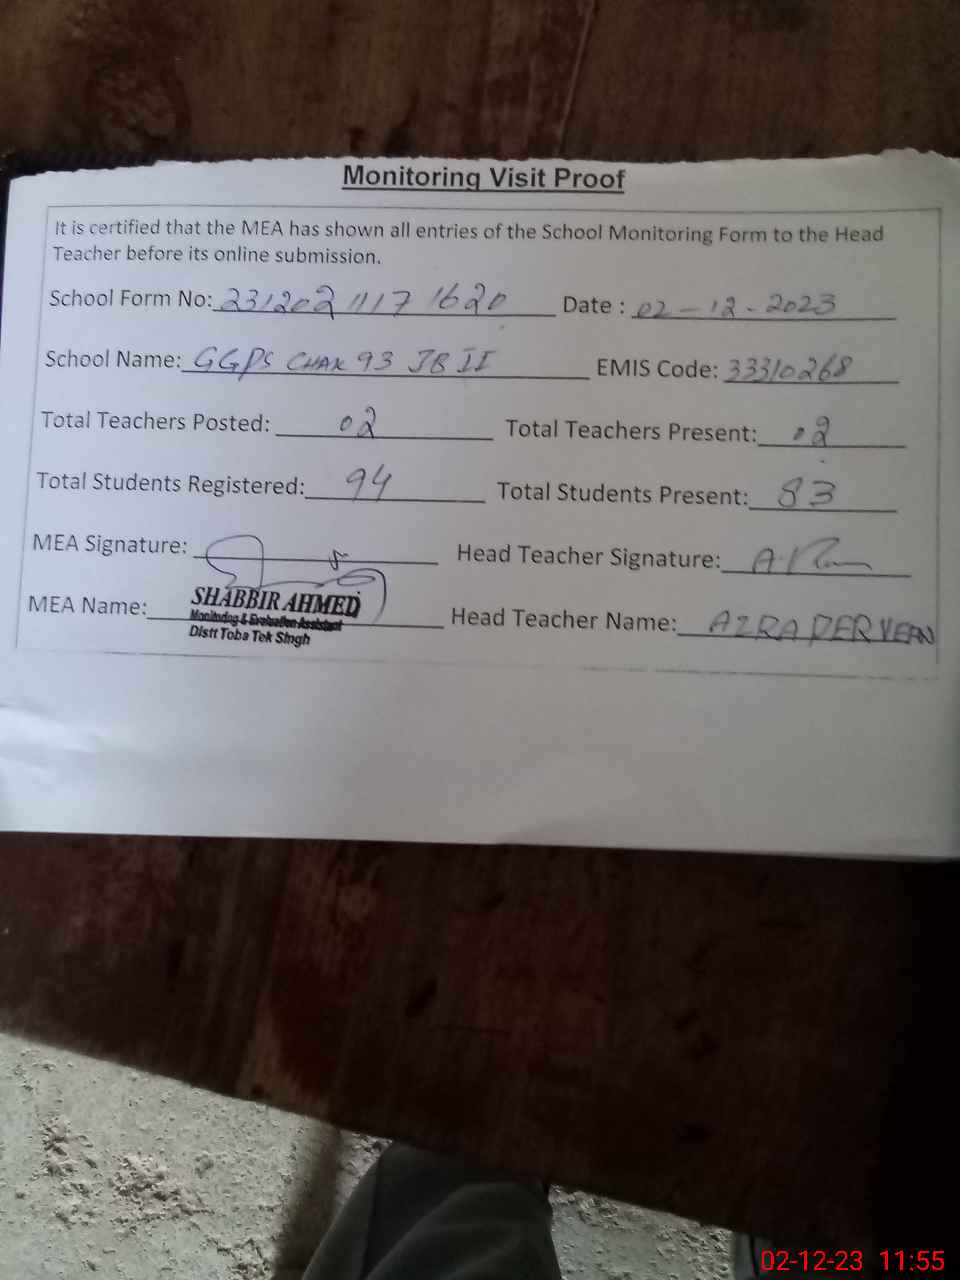 Monitoring Visit Proof
It is certified that the MEA has shown all entries of the School Monitoring Form to the Head
Teacher before its online submission.
School Form No: 231202 1117 1620 Date : 02-12-2023
School Name: GGPS CHAK 93 JB II EMIS Code: 33310268
Total Teachers Posted: 02 Total Teachers Present: 02
Total Students Registered: 94 Total Students Present: 83
MEA Signature: Head Teacher Signature:
MEA Name: SHABBIR AHMED Head Teacher Name: AZRA PERVEEN
Monitoring & Evaluation Assistant
Distt Toba Tek Singh
02-12-23 11:55